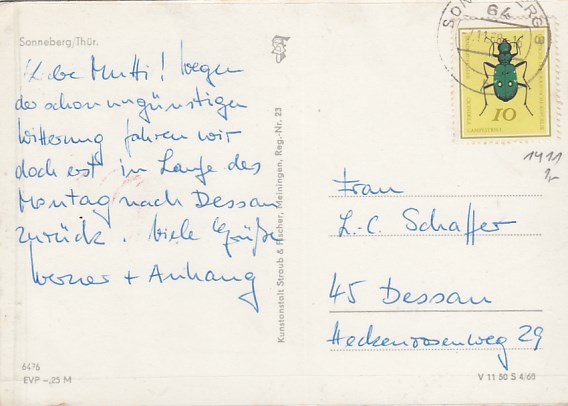 Sonneberg/Thür.
Liebe Mutti! Wegen
der schon ungünstigen
Witterung fahren wir
doch erst im Laufe des
Montag nach Dessau
zurück. Viele Grüße
Werner + Anhang
6476
EVP -,25 M
Kunstanstalt Straub & Fischer, Meiningen, Reg.-Nr. 23
SONNEBERG 3
64
10
1411
Frau
L.-C. Schaffer
45 Dessau
Heckenrosenweg 29
V 11 50 S 4/68